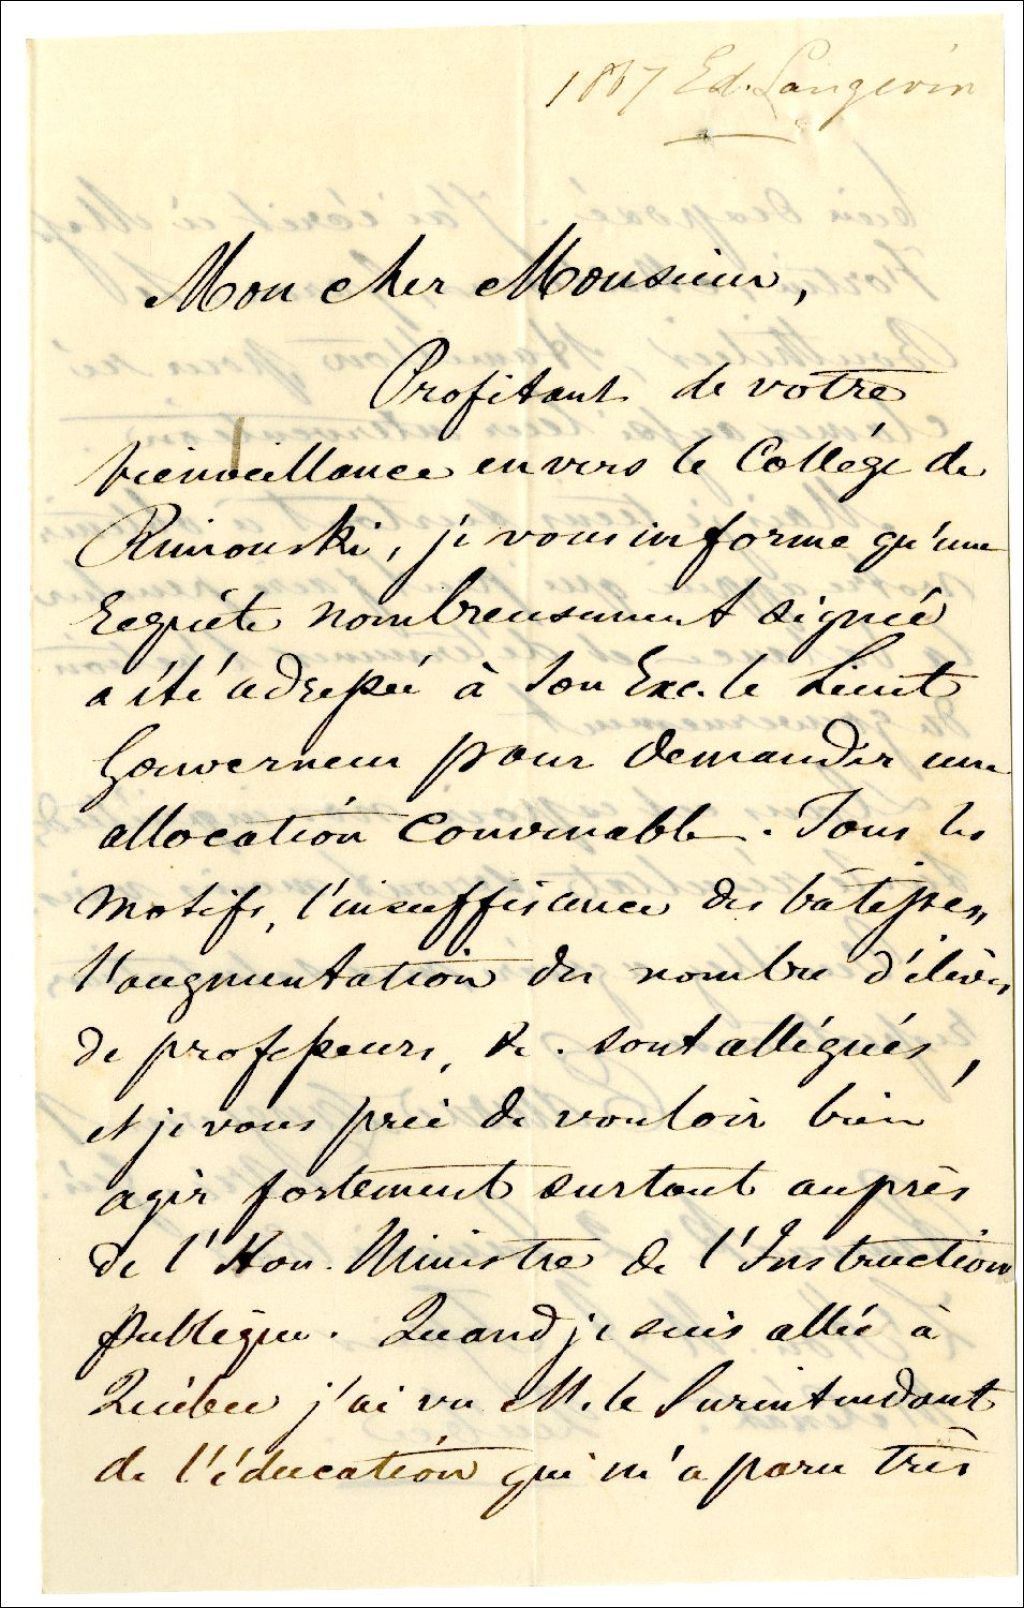 1867 Ed. Langevin
Mon cher Monsieur,
Profitant de votre
bienveillance envers le Collége de
Rimouski, je vous informe qu'une
requête nombreusement signée
a été adressée à Son Exc. le Lieut
Gouverneur pour demander une
allocation convenable. Tous les
motifs, l'insuffisance des bâtisses,
l'augmentation du nombre d'élèves
de professeurs, &c. sont allégués,
et je vous prie de vouloir bien
agir fortement surtout auprès
de l'Hon. Ministre de l'Instruction
publique. Quand je suis allé à
Québec j'ai vu M. le Surintendant
de l'éducation qui m'a paru très